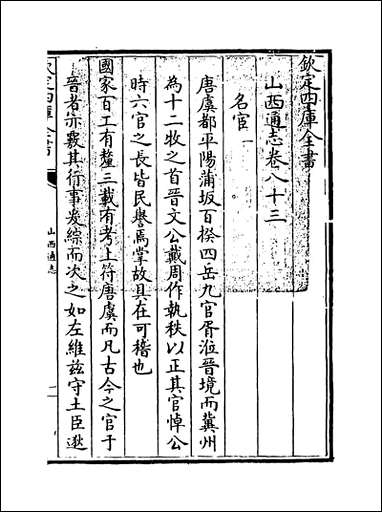 欽定四庫全書
山西通志卷八十三
名宦一
唐虞都平陽蒲坂百揆四岳九官胥涖晉境而冀州
為十二牧之首晉文公戴周作執秩以正其官悼公
時六官之長皆民譽焉掌故具在可稽也
國家百工有釐三載有考上符唐虞而凡古今之官于
晉者亦覈其行事爰綜而次之如左維兹守土臣遬
欽定四庫全書
山西通志